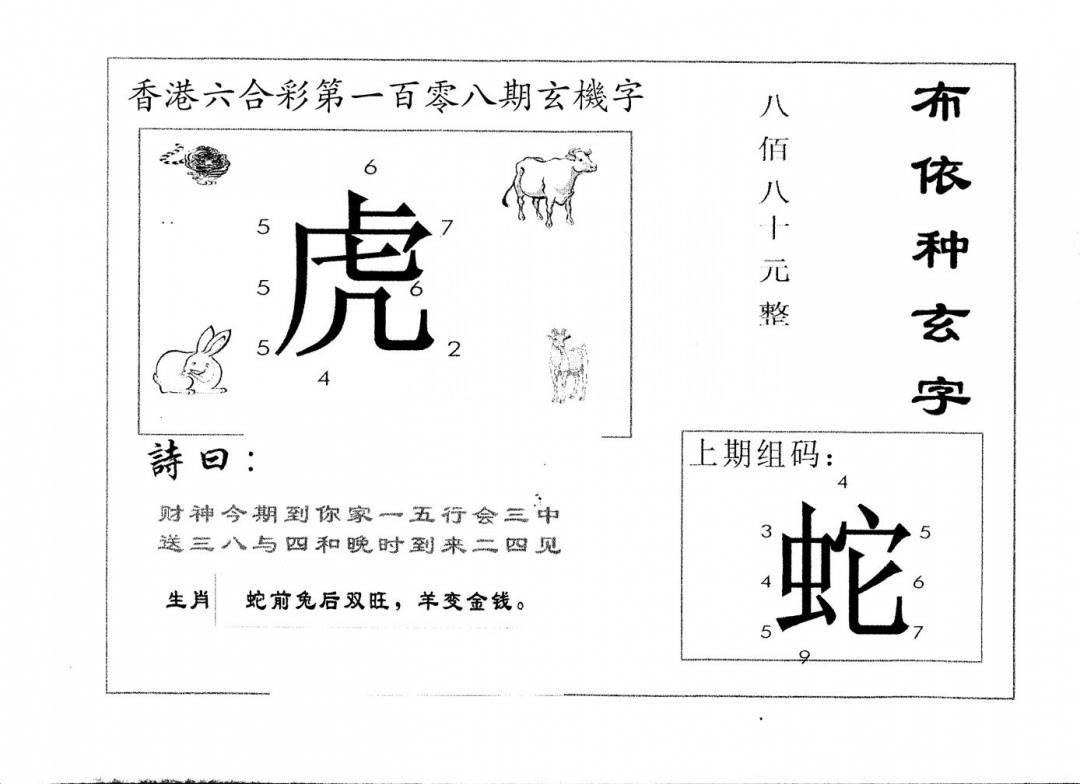 香港六合彩第一百零八期玄機字
6
5
虎
7
5
6
5
2
4
詩曰：
财神今期到你家一五行会三中
送三八与四和晚时到来二四见
生肖 蛇前兔后双旺，羊变金钱。
八佰八十元整
布依种玄字
上期组码：
4
3
蛇
5
4
6
5
7
9